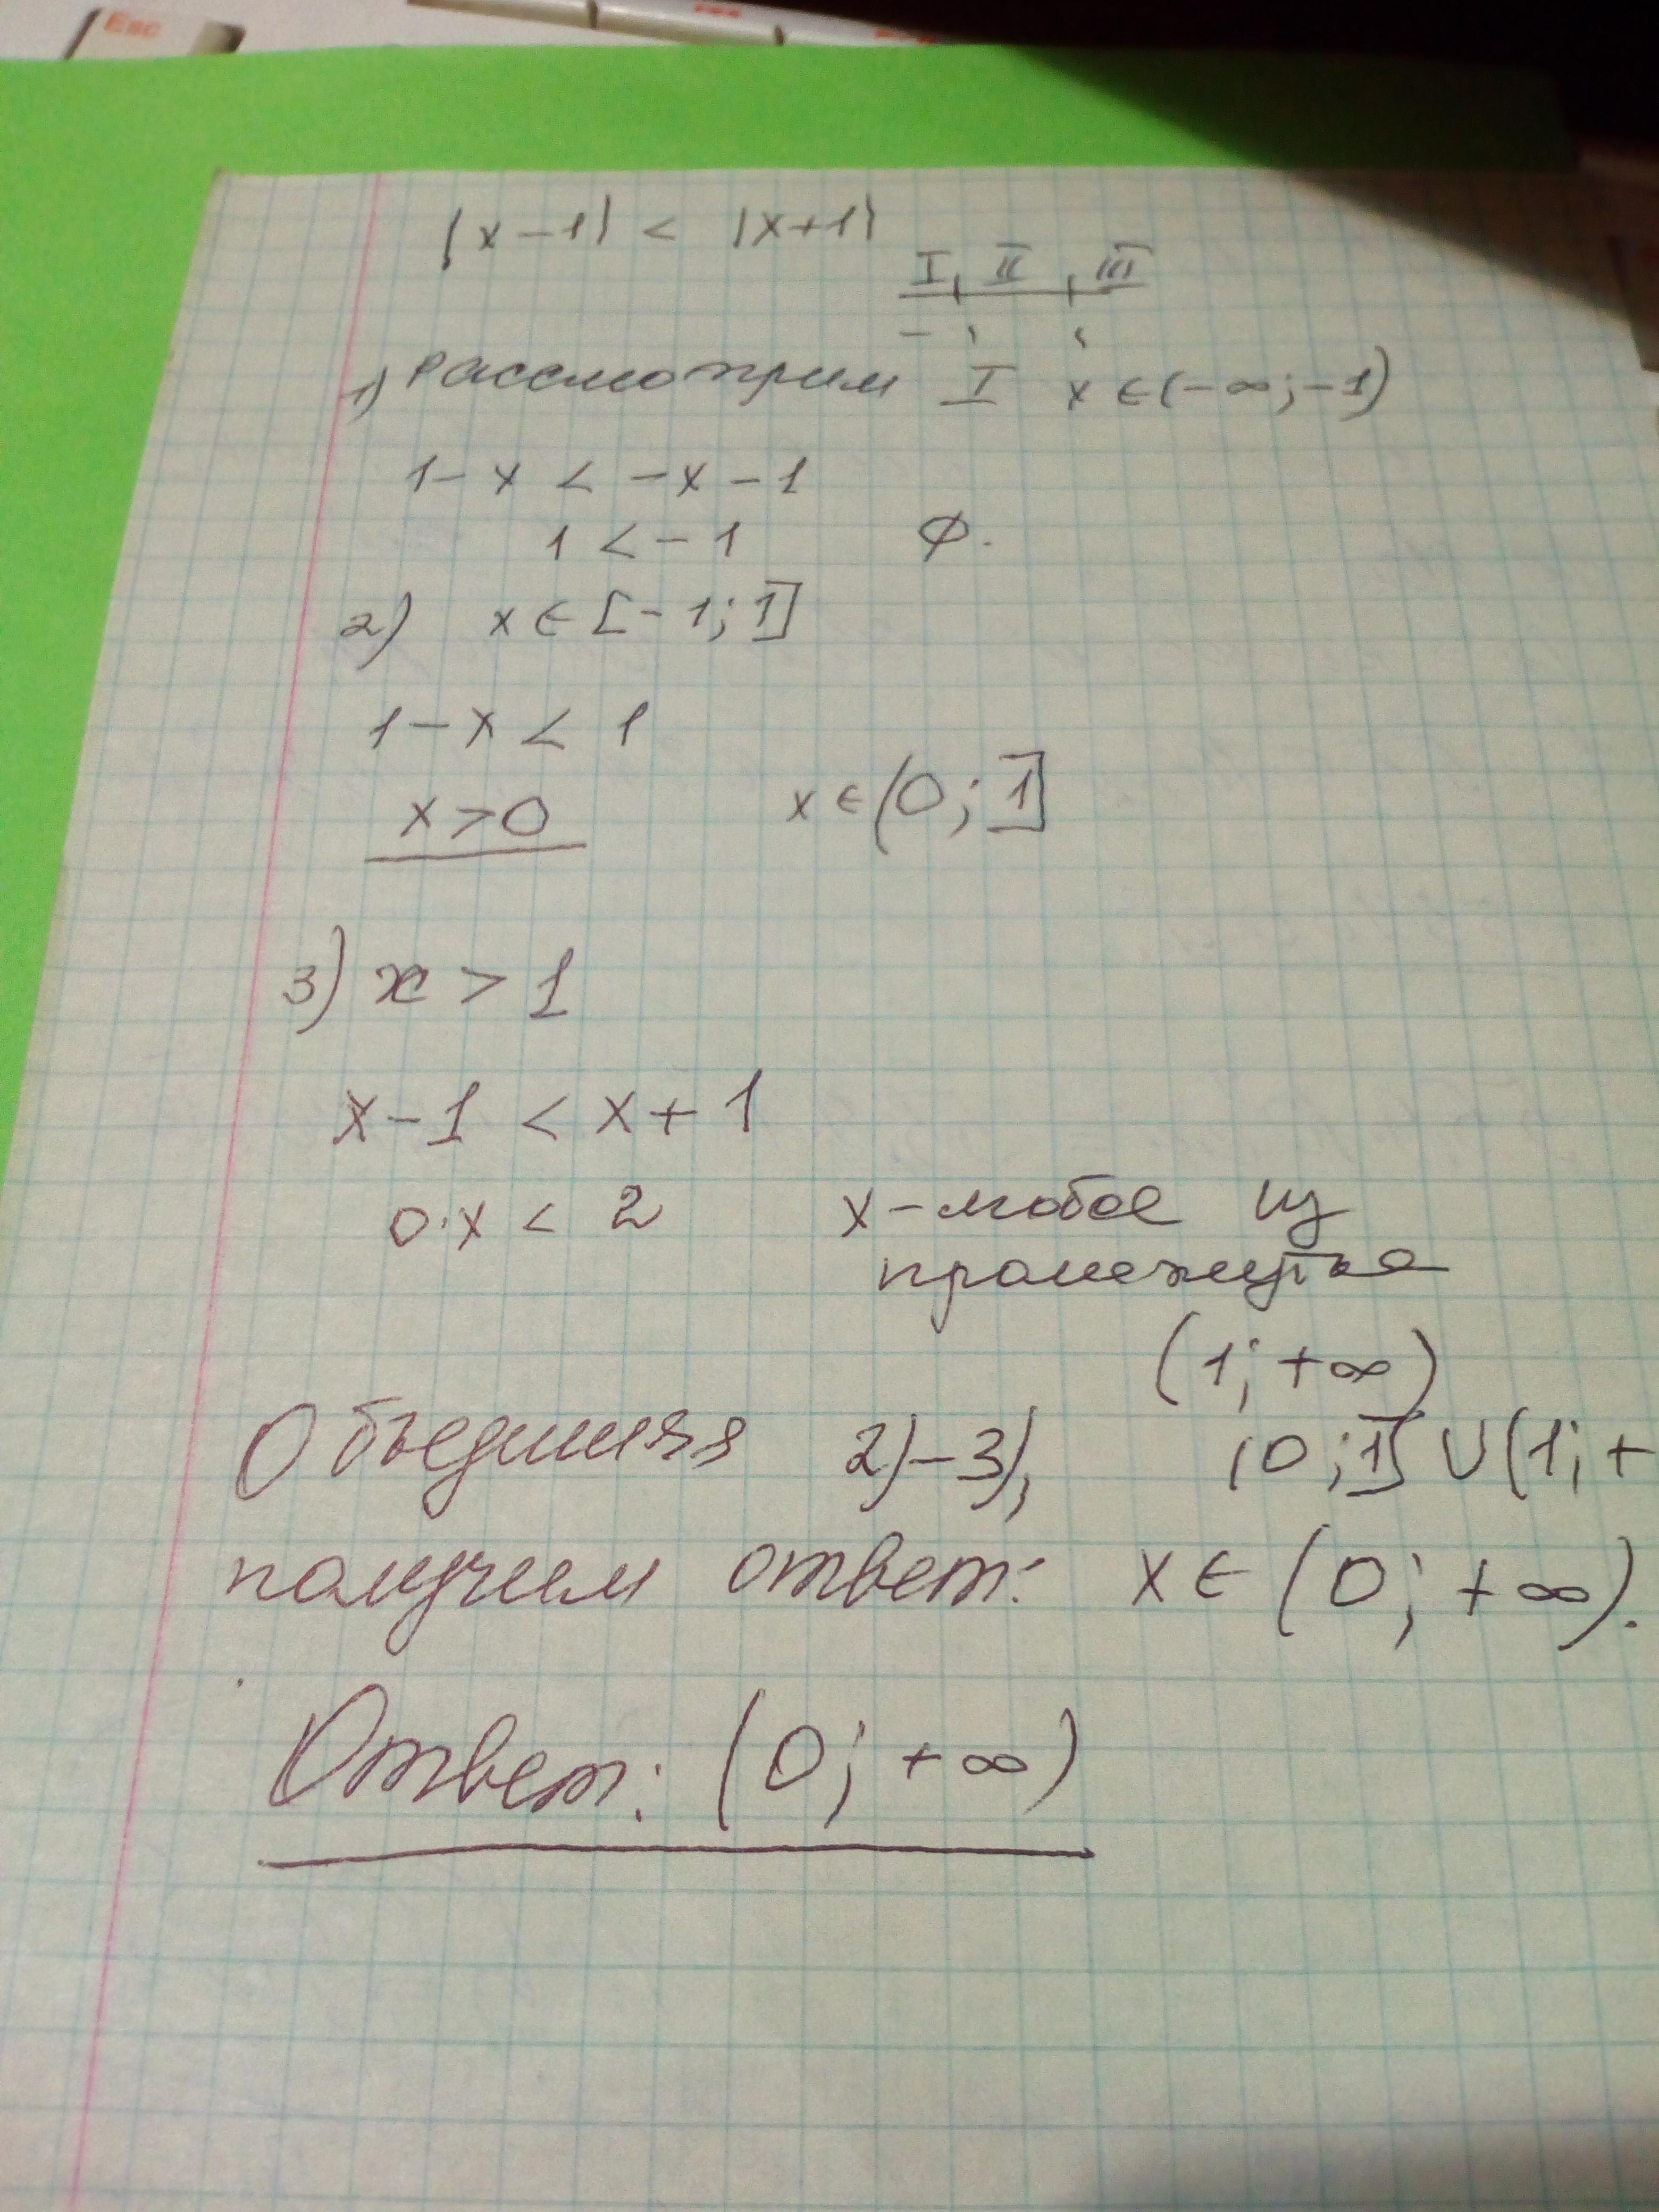 Esc
|x-1| < |x+1|
I II III
1) Рассмотрим I x ∈ (-∞; -1)
1-x < -x-1
1 < -1 ∅.
2) x ∈ [-1; 1]
1-x < 1
x > 0 x ∈ (0; 1]
3) x > 1
x-1 < x+1
0·x < 2 x - любое из
промежутка
(1; +∞)
Объединяя 2)-3), (0; 1] ∪ (1; +
получим ответ: x ∈ (0; +∞).
Ответ: (0; +∞)